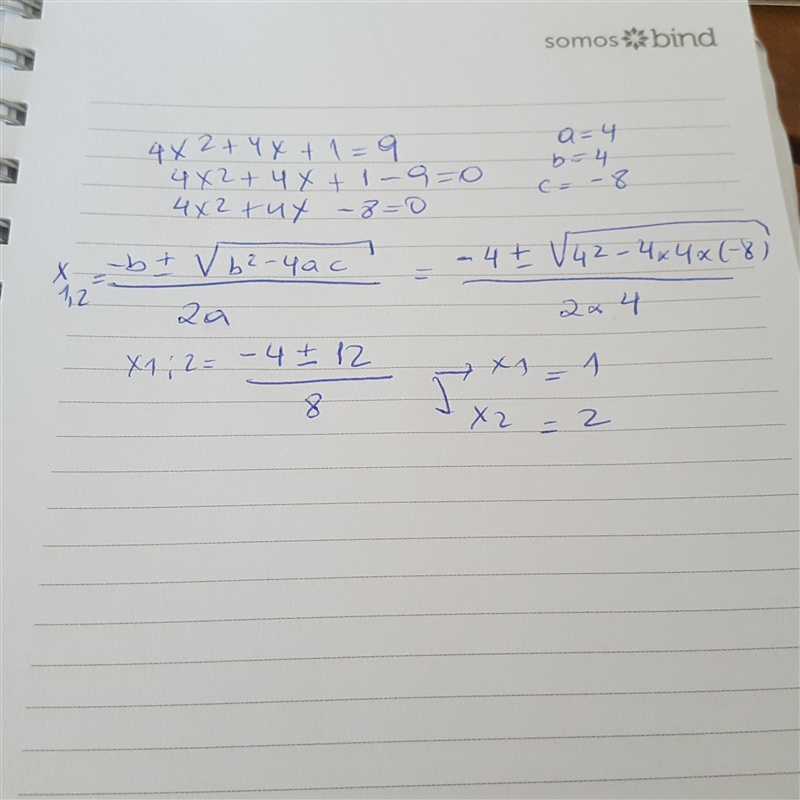 somos bind
4x2 + 4x + 1 = 9
4x2 + 4x + 1 - 9 = 0
4x2 + 4x - 8 = 0
a = 4
b = 4
c = -8
x 1,2 = -b ± √b² - 4ac / 2a = -4 ± √4² - 4x4x(-8) / 2x4
x1;2 = -4 ± 12 / 8 → x1 = 1
x2 = 2